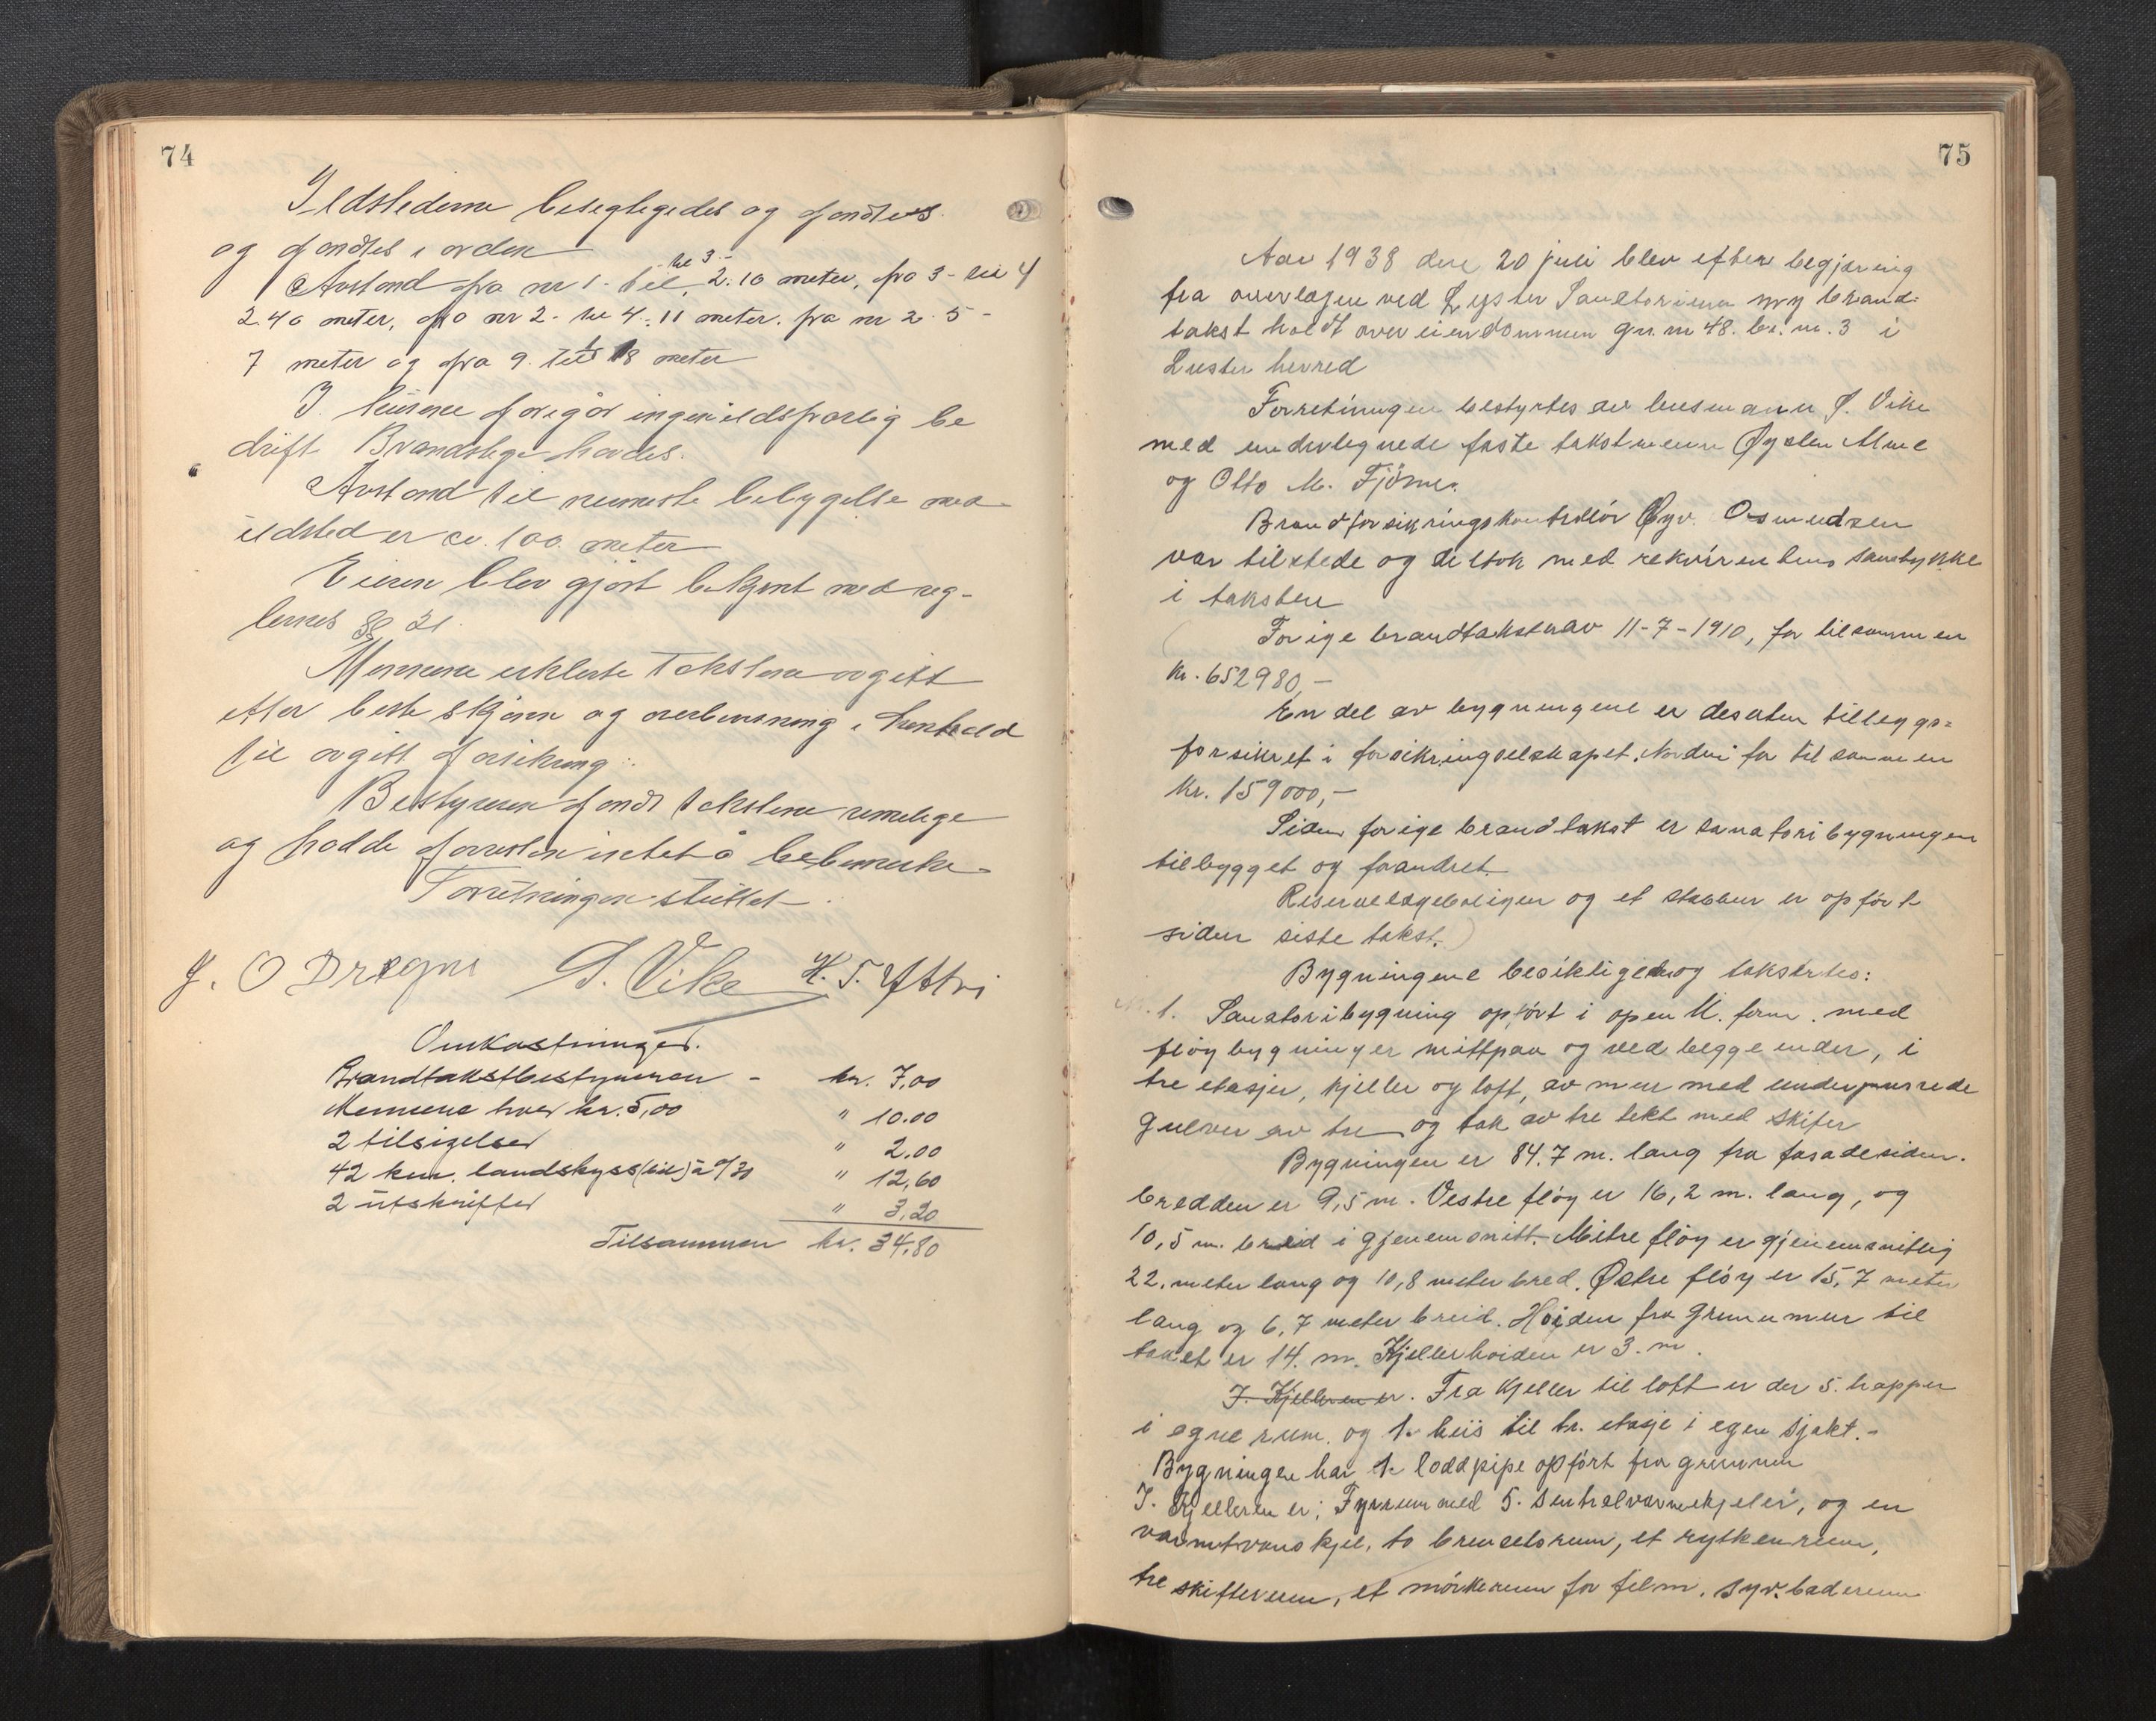 74
Ildstederne besegtigedes og fandtes
og fandtes i orden
til 3 -
Avstand fra nr 1 - til 2. 10 meter, fra 3 - til 4
2.40 meter, fra nr 2 - til 4. 11 meter. fra nr 2. 5 -
7 meter og fra 9. til 18 meter
I husene foregår ingen ildsfarlig be
drift Brandstige havdes.
Avstand til nermeste bebygelse med
ildsted er ca. 100 meter
Eieren blev gjort bekjent med reg-
lernes § 21.
Mennene erklerte takstene avgitt
etter beste skjønn og overbevisning i henhold
til avgitt forsikring.
Bestyreren fandt takstene rimelige
og hadde forresten intet å bebemerke.
Forretningen sluttet
J. O Drægni S. Vike H. T. Ystri
Omkostninger.
Brandtakstbestyreren - kr. 7,00
Mennene hver kr. 5,00 " 10.00
2 tilsigelser " 2.00
42 km. landskyss (bil) à 0/30 " 12,60
2 utskrifter " 3,20
Tilsammen kr. 34,80
75
Aar 1938 den 20 juli blev efter begjæring
fra overlægen ved Lyster Sanatorium ny brand-
takst holdt over eiendommen gn. nr 48. br. nr. 3 i
Luster herred
Forretningen bestyrtes av lensmann S. Vike
med undertegnede faste takstmenn Øystein Alme
og Otto M. Fjørne.
Brandforsikringskontrollør Øyv. Osmundsen
var tilstede og deltok med rekvirentens samtykke
i taksten
Forige brandtakst er av 11-7-1910, for tilsammen
kr. 652980,-
En del av bygningene er desuten tilleggs-
forsikret i forsikringsselskapet Norden for tilsammen
kr. 159000,-
Siden forige brandtakst er sanatoribygningen
tilbygget og forandret.
Reservelægeboligen og et stabbur er opført
siden siste takst.
Bygningene besiktigedes og taksertes:
Nr. 1. Sanatoribygning opført i open U. form. med
fløybygninger mittpaa og ved begge ender, i
tre etasjer, kjeller og loft, av mur med underpussede
gulver av tre og tak av tre tekt med skifer
Bygningen er 84.7 m. lang fra fasadesiden.
bredden er 9,5 m. Vestre fløy er 16,2 m. lang, og
10,5 m. breid i gjenemsnitt. Mitre fløy er gjenemsnitlig
22. meter lang og 10,8 meter bred. Østre fløy er 15,7 meter
lang og 6,7 meter breid. Høiden fra grunnmur til
taket er 14. m. Kjellerhøiden er 3. m.
I. Kjelleren er. Fra kjeller til loft er der 5. trapper
i egne rum. og 1. heis til tr. etasje i egen sjakt.-
Bygningen har 1. loddpipe opført fra grunnen
I. Kjelleren er; Fyrrum med 5. sentralvarmekjeler, og en
varmtvanskjel, to brenselsrum, et
tre skifterum, et mørkerum for film. syv. baderum